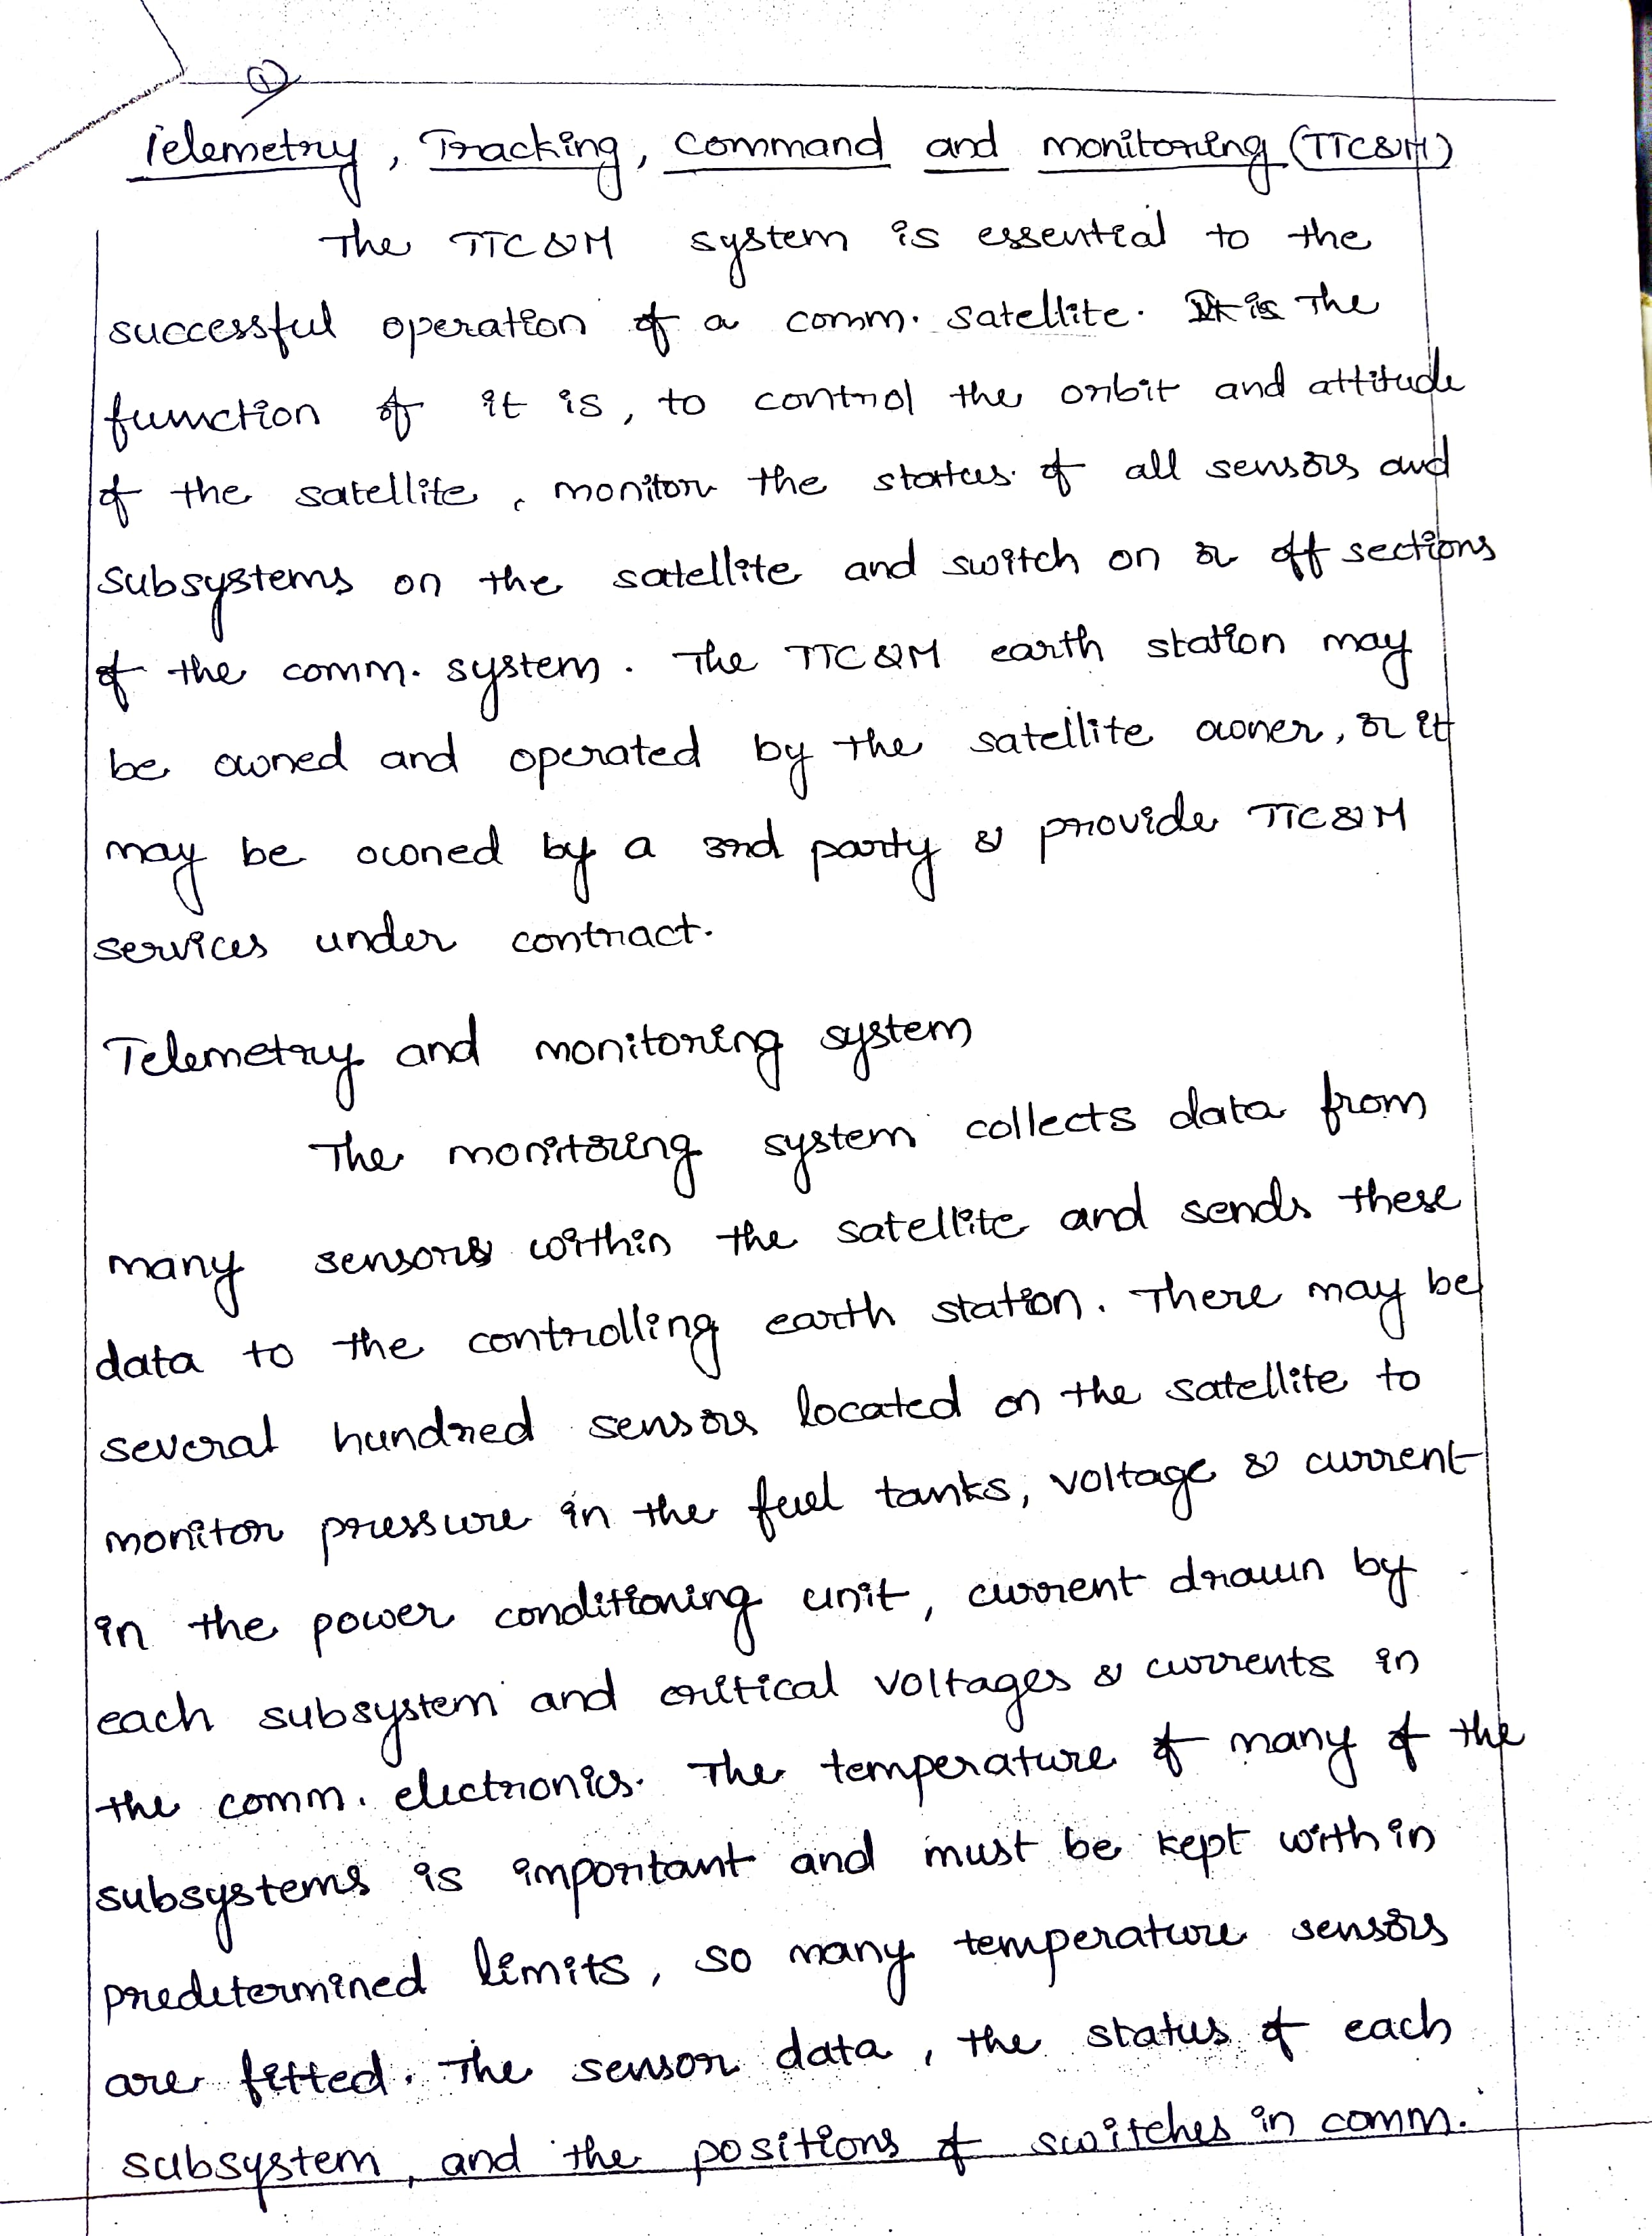 1
Telemetry, Tracking, command and monitoring (TTC&M)
The TTC&M system is essential to the
successful operation of a comm. satellite. It is The
function of it is, to control the orbit and attitude
of the satellite, monitor the status of all sensors and
subsystems on the satellite and switch on or off sections
of the comm. system. The TTC&M earth station may
be owned and operated by the satellite owner, or it
may be owned by a 3rd party & provide TTC&M
services under contract.
Telemetry and monitoring system
The monitoring system collects data from
many sensors within the satellite and sends these
data to the controlling earth station. There may be
several hundred sensors located on the satellite to
monitor pressure in the fuel tanks, voltage & current
in the power conditioning unit, current drawn by
each subsystem and critical voltages & currents in
the comm. electronics. The temperature of many of the
subsystems is important and must be kept within
predetermined limits, so many temperature sensors
are fitted. The sensor data, the status of each
subsystem, and the positions of switches in comm.